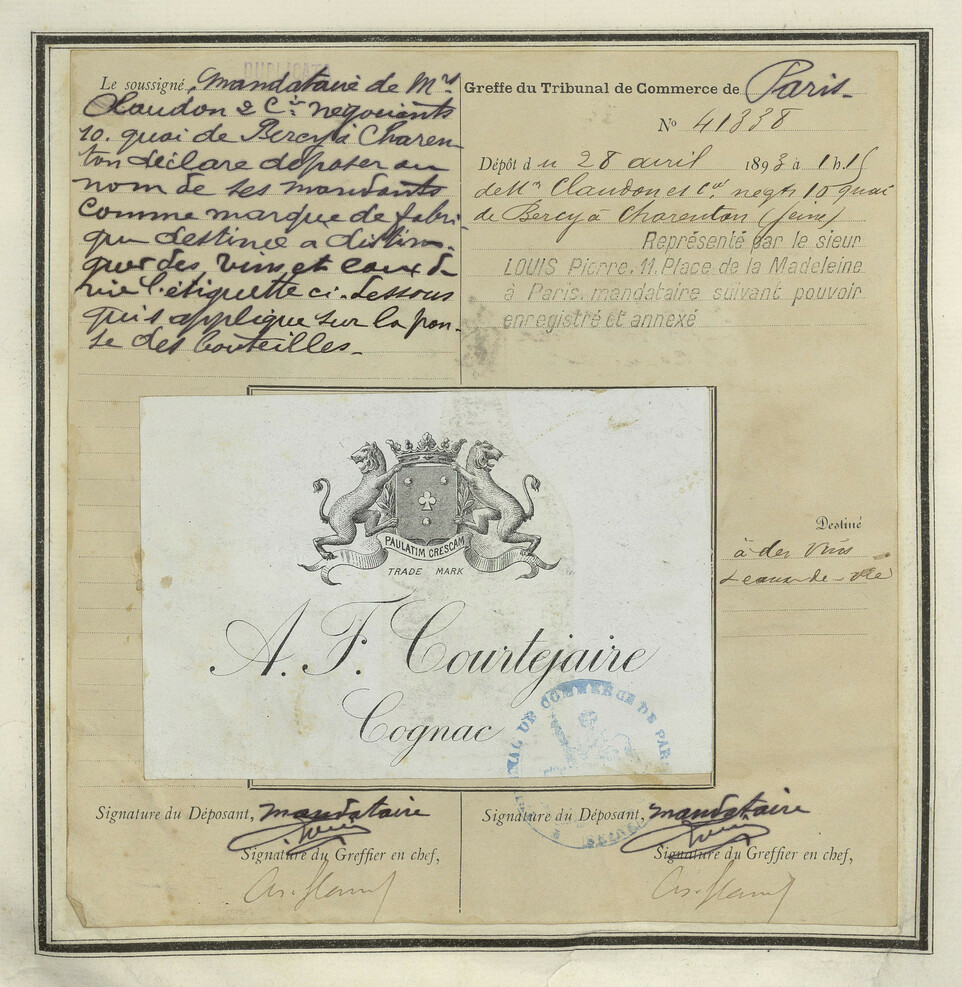 DUPLICATA
Le soussigné, mandataire de Mrs
Claudon & Cie négociants
10. quai de Bercy à Charen-
ton déclare déposer au
nom de ses mandants
comme marque de fabri-
que destinée a distin-
guer des vins et eaux de
vie l'étiquette ci-dessous
qui s'applique sur la pan-
se des bouteilles.
Greffe du Tribunal de Commerce de Paris
No 41338
Dépôt du 28 avril 1893 à 1h.15
de Mrs Claudon et Cie negts 10 quai
de Bercy à Charenton (Seine)
Représenté par le sieur
LOUIS Pierre, 11, Place de la Madeleine
à Paris, mandataire suivant pouvoir
enregistré et annexé
PAULATIM CRESCAM
TRADE MARK
A. F. Courtejaire
Cognac
NAL DE COMMERCE DE PAR
Destiné
à des vins
& eaux-de-vie
Signature du Déposant, mandataire
Signature du Greffier en chef,
Signature du Déposant, mandataire
Signature du Greffier en chef,